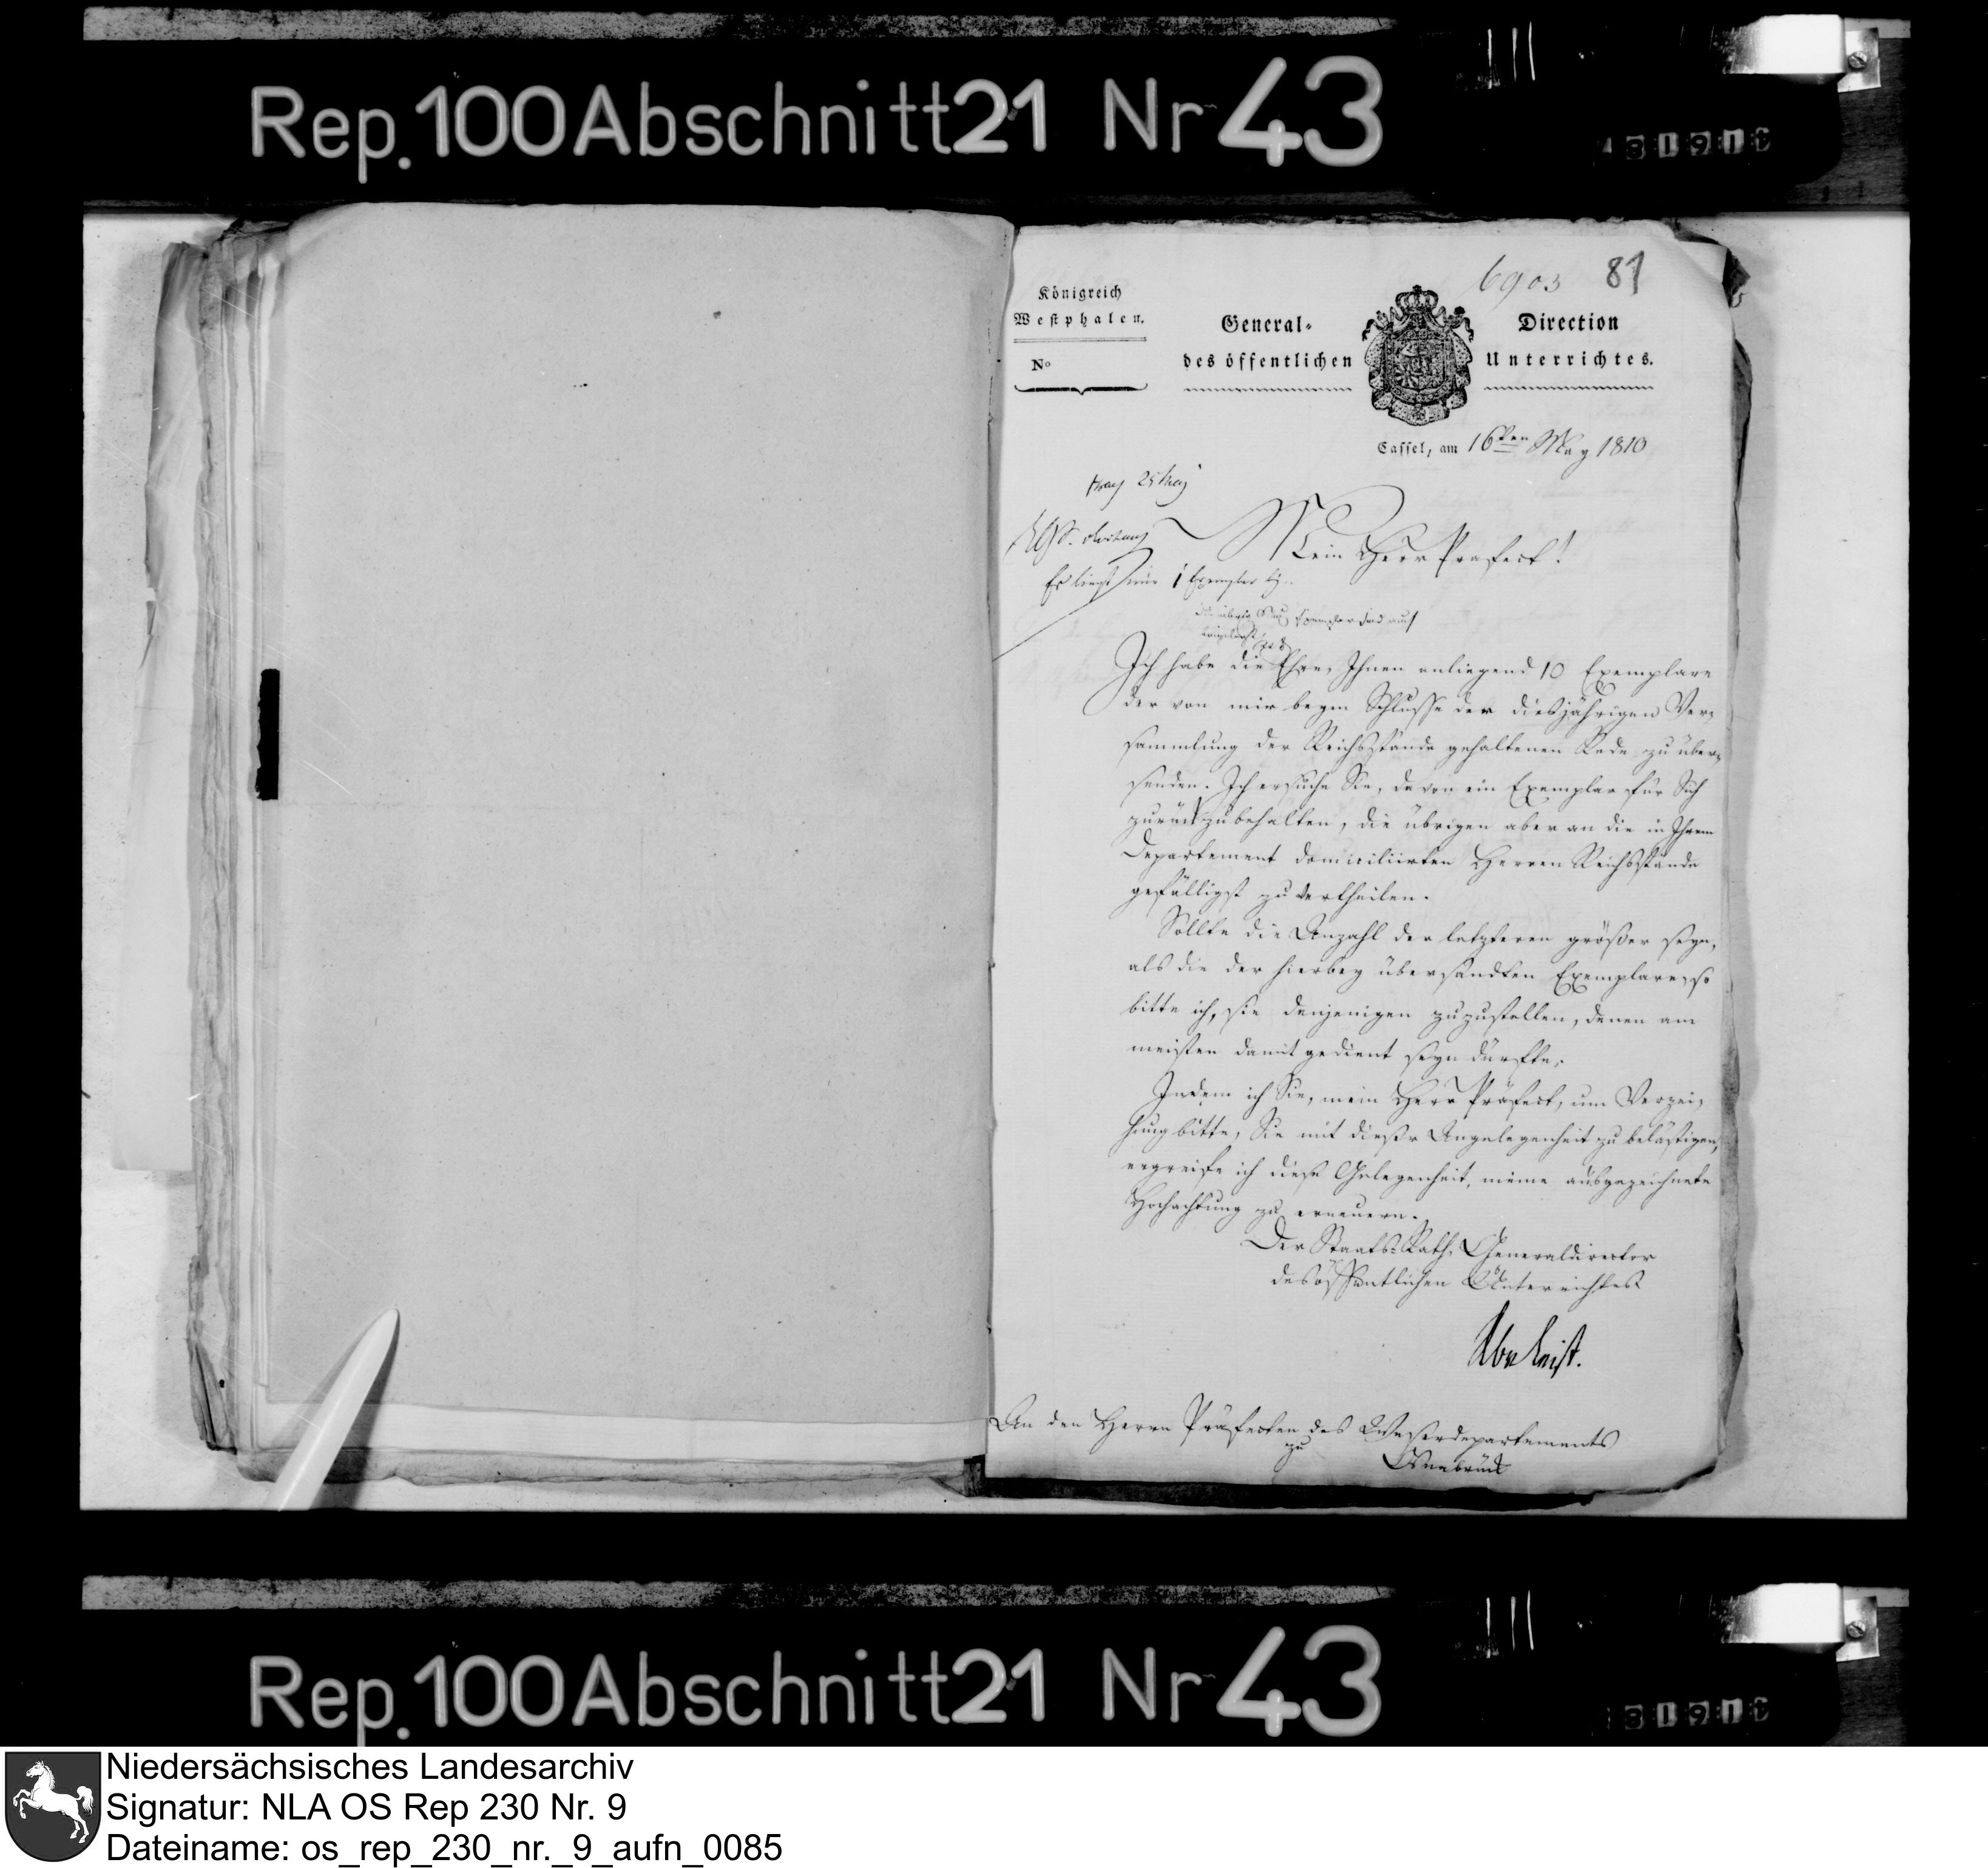 Rep. 100 Abschnitt 21 Nr 43
6903 81
Königreich
Westphalen.
No
General- Direction
des öffentlichen Unterrichtes.
Cassel, am 16ten May 1810
Mein Herr Praefect!
Es liegt nur 1 Exemplar
Ich habe die Ehre, Ihnen anliegend 10 Exemplare
der von mir beym Schlusse der dießjährigen Ver-
sammlung der Reichsstände gehaltenen Rede zu über-
senden. Ich ersuche Sie, davon ein Exemplar für Sich
zurückzubehalten, die übrigen aber an die in Ihrem
Departement domiciliirten Herren Reichsstände
gefälligst zu vertheilen.
Sollte die Anzahl der letzteren größer seyn,
als die der hierbey übersandten Exemplare, so
bitte ich, sie denjenigen zuzustellen, denen am
meisten damit gedient seyn dürfte.
Indem ich Sie, mein Herr Präfect, um Verzei-
hung bitte, Sie mit dieser Angelegenheit zu belästigen,
ergreife ich diese Gelegenheit, meine ausgezeichnete
Hochachtung zu erneuern.
Der Staats-Rath, Generaldirector
des öffentlichen Unterrichtes
Leist.
An den Herrn Präfecten des Weserdepartements
zu
Osnabrück
Rep. 100 Abschnitt 21 Nr 43
Niedersächsisches Landesarchiv
Signatur: NLA OS Rep 230 Nr. 9
Dateiname: os_rep_230_nr._9_aufn_0085